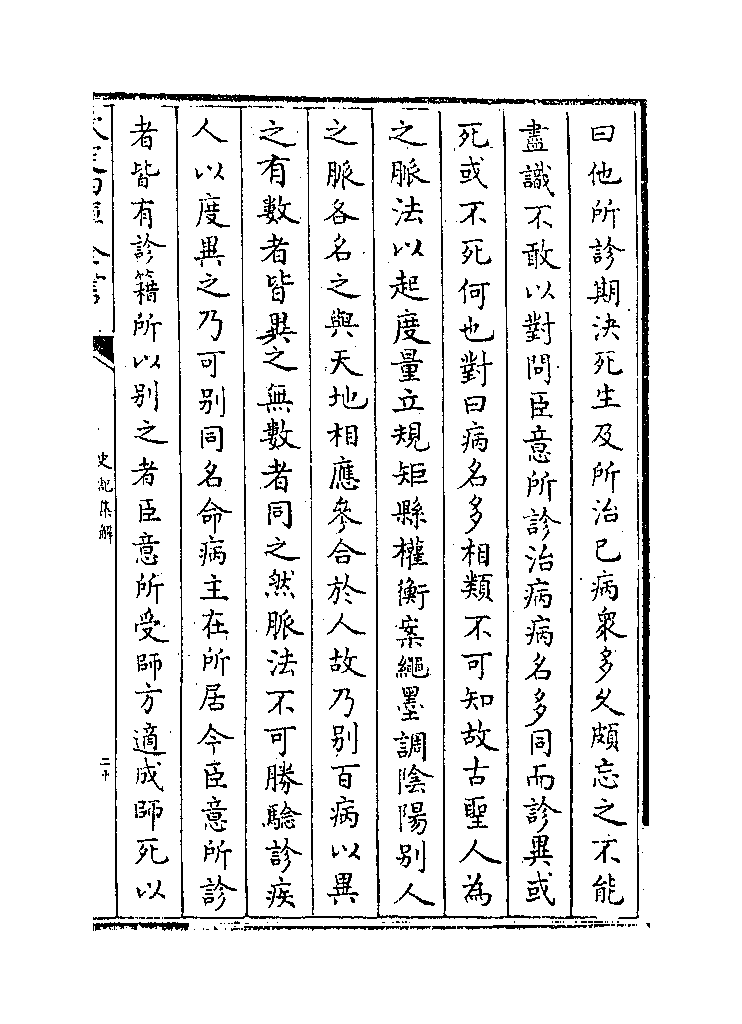 曰他所診期決死生及所治已病衆多乆頗忘之不能
盡識不敢以對問臣意所診治病病名多同而診異或
死或不死何也對曰病名多相類不可知故古聖人為
之脈法以起度量立規矩縣權衡案繩墨調陰陽别人
之脈各名之與天地相應參合於人故乃别百病以異
之有數者皆異之無數者同之然脈法不可勝驗診疾
人以度異之乃可别同名命病主在所居今臣意所診
者皆有診籍所以别之者臣意所受師方適成師死以
史記集解
二十